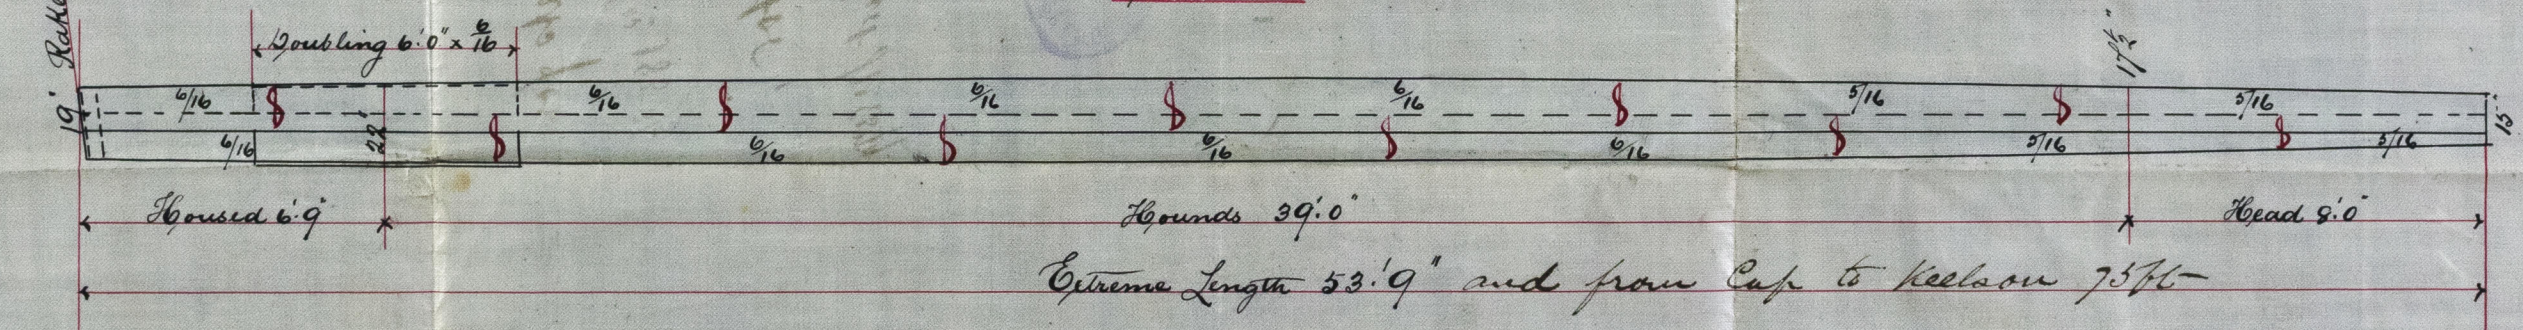 Rake
Doubling 6'.0" x 6/16
17½"
6/16 6/16 6/16 6/16 5/16 5/16
19" 22" 15"
6/16 6/16 6/16 6/16 5/16 5/16
Housed 6'.9" Hounds 39'.0" Head 8'.0"
Extreme Length 53'.9" and from Cap to Keelson 75ft